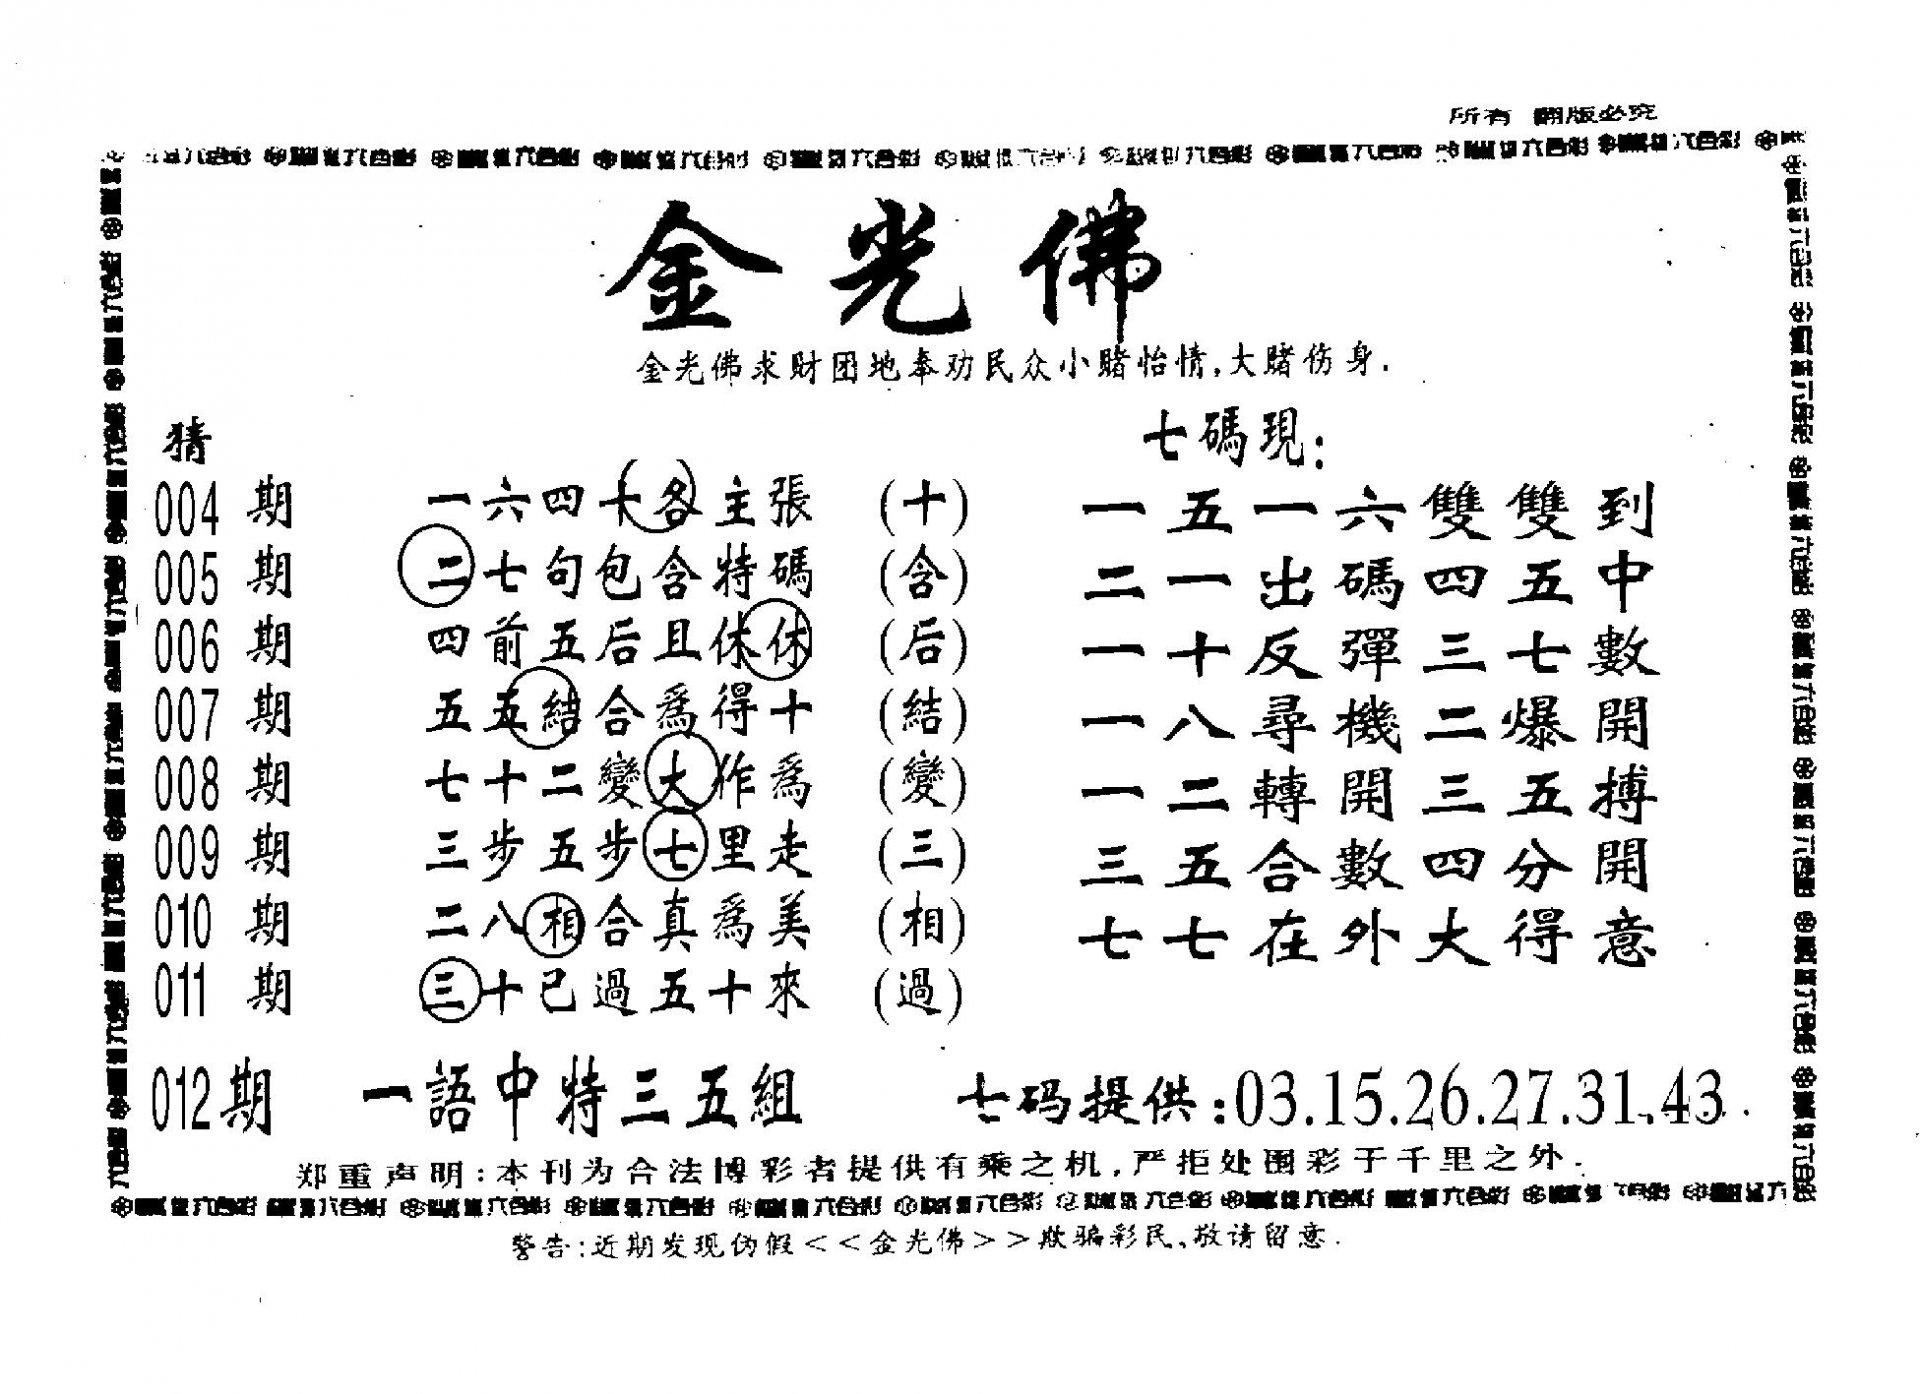 所有 翻版必究
金光佛
金光佛求财团地奉劝民众小赌怡情,大赌伤身.
猜
七碼現:
004期 一六四十各主張 (十) 一五一六雙雙到
005期 二七句包含特碼 (含) 二一出碼四五中
006期 四前五后且休休 (后) 一十反彈三七數
007期 五五結合爲得十 (結) 一八尋機二爆開
008期 七十二變大作爲 (變) 一二轉開三五搏
009期 三步五步七里走 (三) 三五合數四分開
010期 二八相合真爲美 (相) 七七在外大得意
011期 三十已過五十來 (過)
012期 一語中特三五組 七码提供:03.15.26.27.31.43.
郑重声明:本刊为合法博彩者提供有乘之机,严拒处围彩于千里之外.
警告:近期发现伪假<<金光佛>>欺骗彩民,敬请留意.